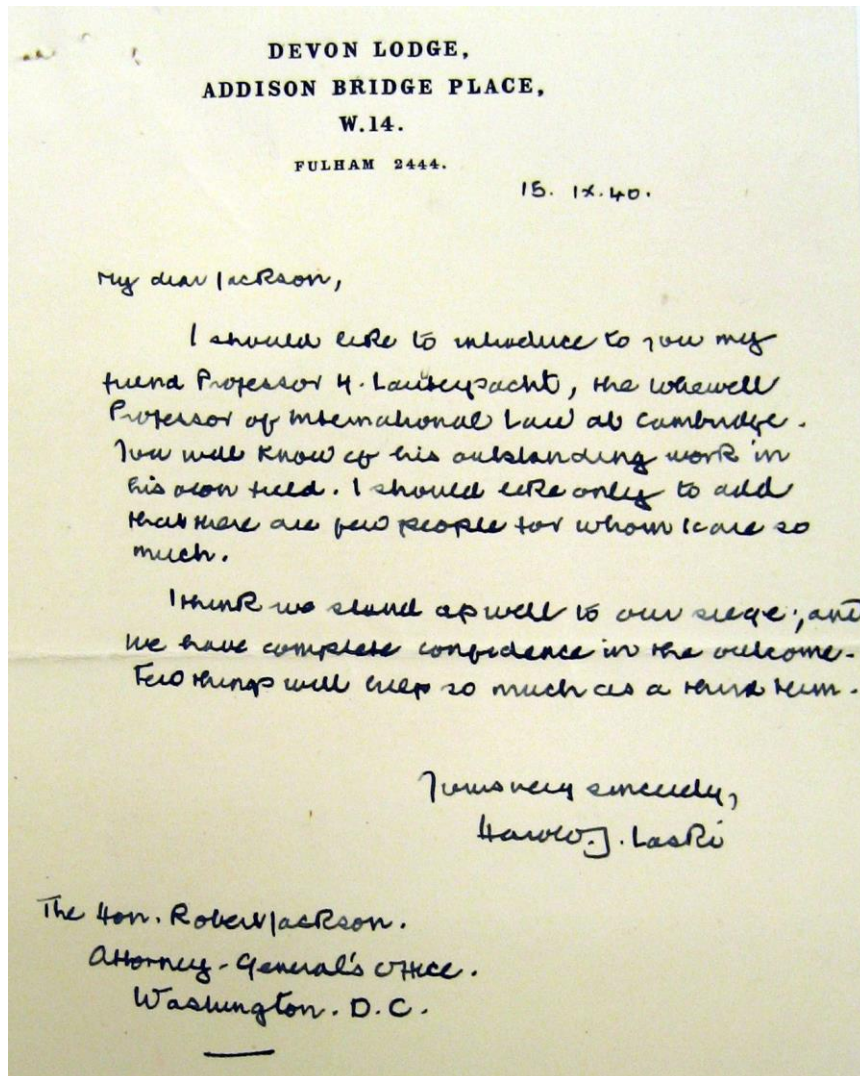 DEVON LODGE,
ADDISON BRIDGE PLACE,
W.14.
FULHAM 2444.
15. IX. 40.
My dear Jackson,
I should like to introduce to you my
friend Professor H. Lauterpacht, the Whewell
Professor of International Law at Cambridge.
You will know of his outstanding work in
his own field. I should like only to add
that there are few people for whom I care so
much.
I think we stand up well to our siege; and
we have complete confidence in the outcome.
Few things will help so much as a third term.
Yours very sincerely,
Harold. J. Laski
The Hon. Robert Jackson.
Attorney-General's Office.
Washington. D.C.